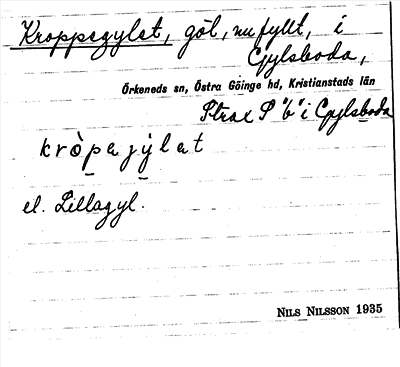 Kroppagylet, göl, nu fyllt, i
Gylsboda,
Örkeneds sn, Östra Göinge hd, Kristianstads län
Strax S "b" i Gylsboda
kròpajýlat
el. Lillagyl.
NILS NILSSON 1935